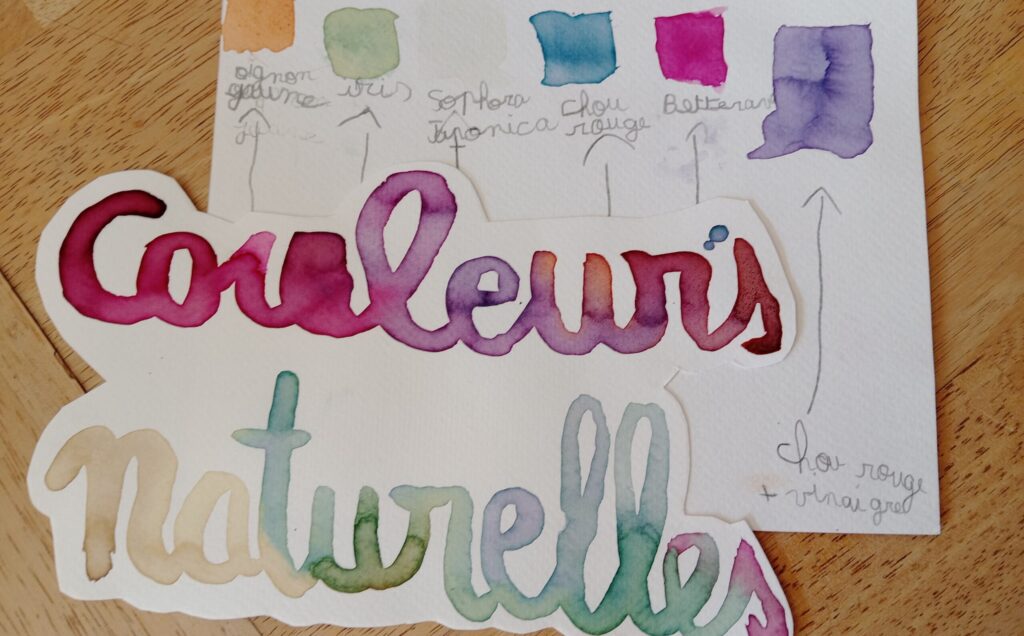 oignon iris Sophora chou Betterave
jaune Japonica rouge
Couleurs
naturelles
chou rouge
+ vinaigre